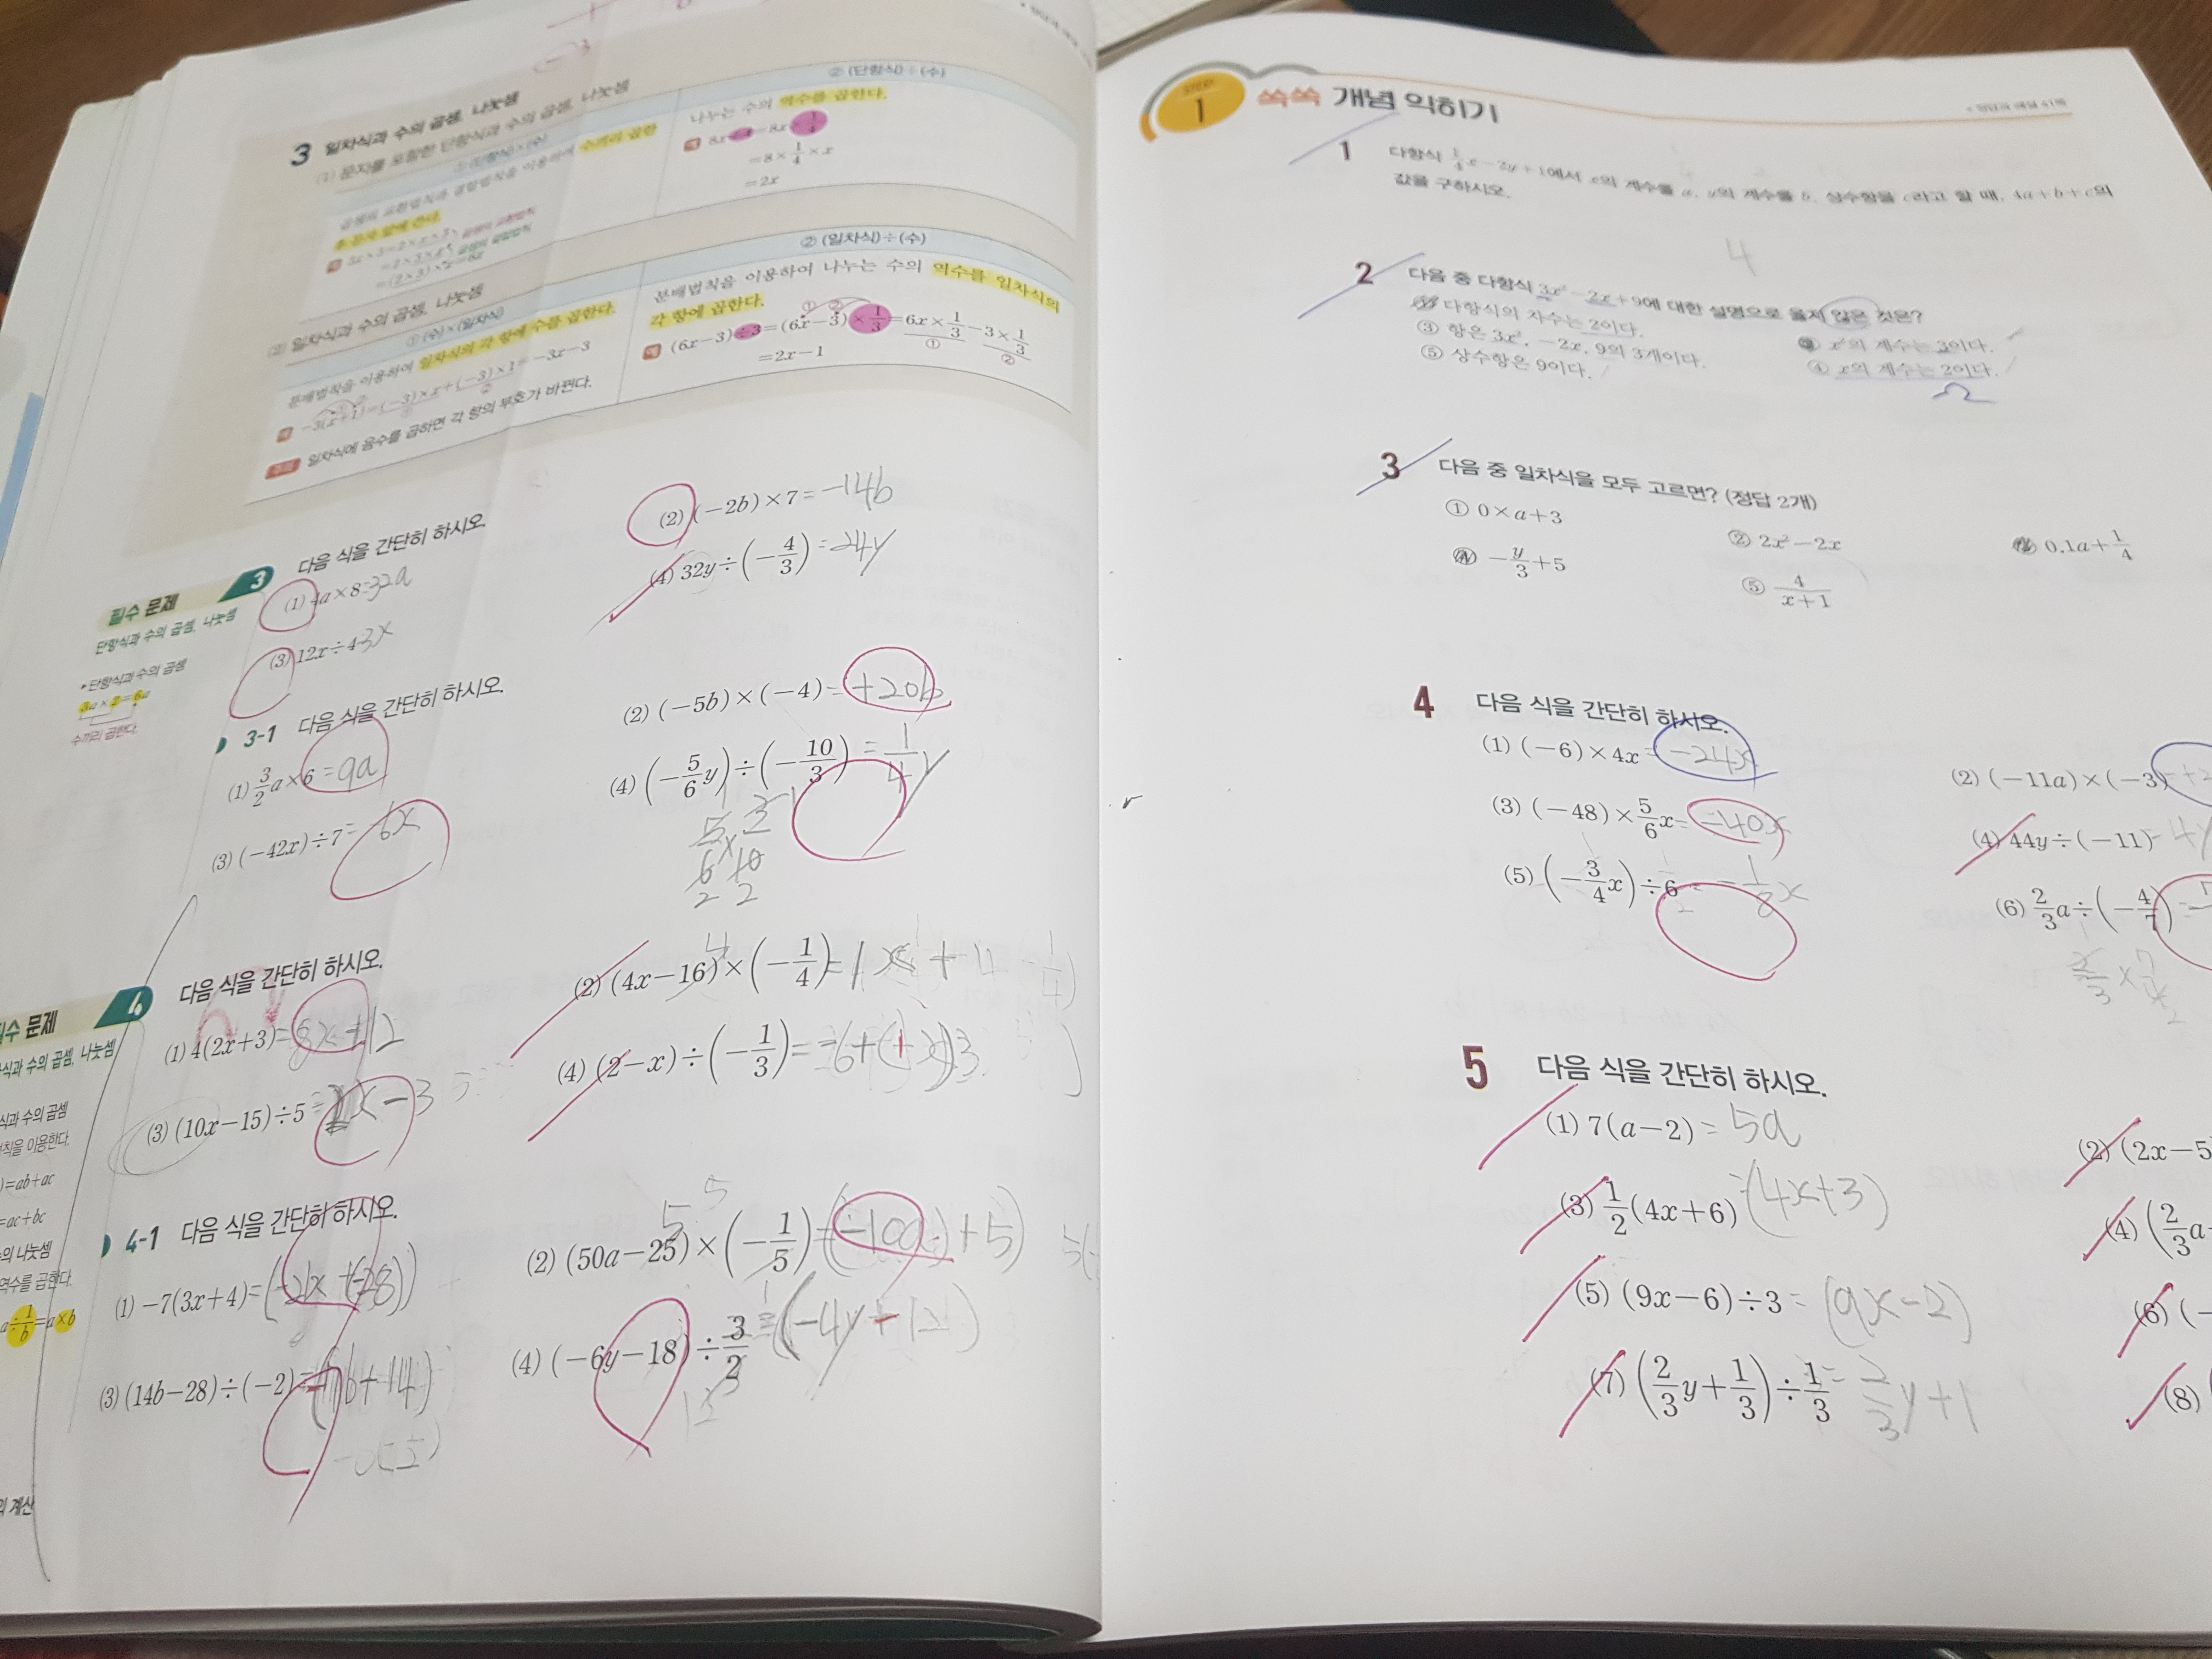 3 일차식과 수의 곱셈, 나눗셈
(1) 문자를 포함한 단항식과 수의 곱셈, 나눗셈
① (단항식)×(수)
② (단항식)÷(수)
곱셈의 교환법칙과 결합법칙을 이용하여 수끼리 곱한
후 문자 앞에 쓴다.
2x×3=2×x×3
=2×3×x
=(2×3)×x=6x
나누는 수의 역수를 곱한다.
8x÷4=8x×1/4
=8×1/4×x
=2x
(2) 일차식과 수의 곱셈, 나눗셈
① (수)×(일차식)
② (일차식)÷(수)
분배법칙을 이용하여 일차식의 각 항에 수를 곱한다.
-3(x+1)=(-3)×x+(-3)×1=-3x-3
① ②
분배법칙을 이용하여 나누는 수의 역수를 일차식의
각 항에 곱한다.
(6x-3)÷3=(6x-3)×1/3=6x×1/3-3×1/3
① ②
=2x-1
주의 일차식에 음수를 곱하면 각 항의 부호가 바뀐다.
필수 문제 3
단항식과 수의 곱셈, 나눗셈
▸단항식과 수의 곱셈
수끼리 곱한다.
다음 식을 간단히 하시오.
(1) 4a×8=32a
(2) (-2b)×7=-14b
(3) 12x÷4 3x
(4) 32y÷(-4/3)=24y
3-1 다음 식을 간단히 하시오.
(1) 3/2a×6=9a
(2) (-5b)×(-4)=+20b
(3) (-42x)÷7=-6x
(4) (-5/6y)÷(-10/3)=1/4y
필수 문제
다음 식을 간단히 하시오.
(1) 4(2x+3)=8x+12
(2) (4x-16)×(-1/4)=
(3) (10x-15)÷5=2x-3
(4) (2-x)÷(-1/3)=
식과 수의 곱셈
칙을 이용한다.
)=ab+ac
=ac+bc
의 나눗셈
역수를 곱한다.
a÷1/b=a×b
4-1 다음 식을 간단히 하시오.
(1) -7(3x+4)=(-21x+(-28))
(2) (50a-25)×(-1/5)=(-10a)+5)
(3) (14b-28)÷(-2)=
(4) (-6y-18)÷3/2=(-4y-12)
의 계산
STEP 1 쏙쏙 개념 익히기
• 정답과 해설 41쪽
1 다항식 1/4x-2y+1에서 x의 계수를 a, y의 계수를 b, 상수항을 c라고 할 때, 4a+b+c의
값을 구하시오.
4
2 다음 중 다항식 3x²-2x+9에 대한 설명으로 옳지 않은 것은?
① 다항식의 차수는 2이다.
② x²의 계수는 3이다.
③ 항은 3x², -2x, 9의 3개이다.
④ x의 계수는 2이다.
⑤ 상수항은 9이다.
3 다음 중 일차식을 모두 고르면? (정답 2개)
① 0×a+3
② 2x²-2x
0.1a+1/4
-y/3+5
⑤ 4/x+1
4 다음 식을 간단히 하시오.
(1) (-6)×4x=-24x
(2) (-11a)×(-3)
(3) (-48)×5/6x=-40x
(4) 44y÷(-11)=4y
(5) (-3/4x)÷6=-1/8x
(6) 2/3a÷(-4/7)=
5 다음 식을 간단히 하시오.
(1) 7(a-2)=5a
(2) (2x-5
(3) 1/2(4x+6)=(4x+3)
(4) (2/3a-
(5) (9x-6)÷3=(9x-2)
(6) (-
(7) (2/3y+1/3)÷1/3=2/3y+1
(8)